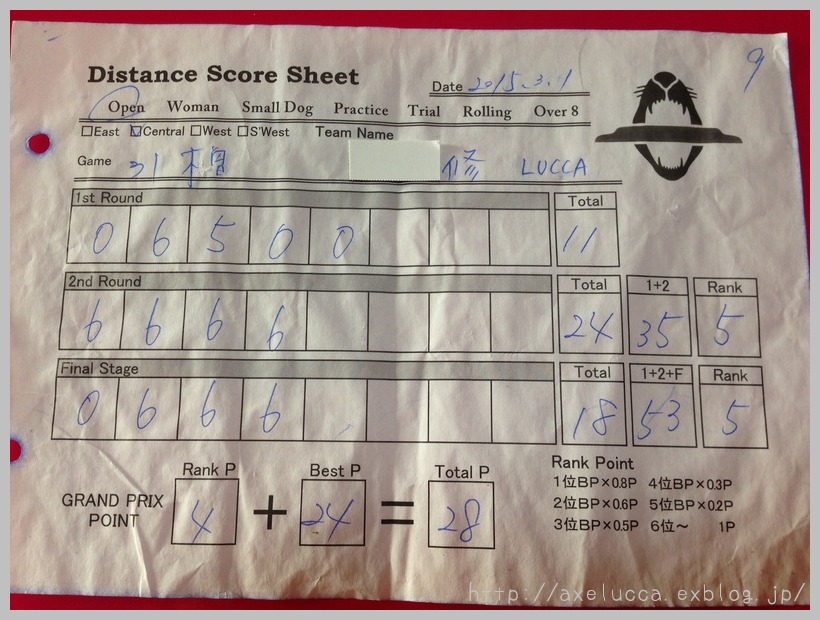 9
Distance Score Sheet
Date 2015.3.1
Open Woman Small Dog Practice Trial Rolling Over 8
□East ☑Central □West □S'West Team Name
Game 修 LUCCA
1st Round Total
0 6 5 0 0 11
2nd Round Total 1+2 Rank
6 6 6 6 24 35 5
Final Stage Total 1+2+F Rank
0 6 6 6 18 53 5
Rank P Best P Total P
GRAND PRIX POINT 4 + 24 = 28
Rank Point
1位BP×0.8P 4位BP×0.3P
2位BP×0.6P 5位BP×0.2P
3位BP×0.5P 6位～ 1P
http://axelucca.exblog.jp/